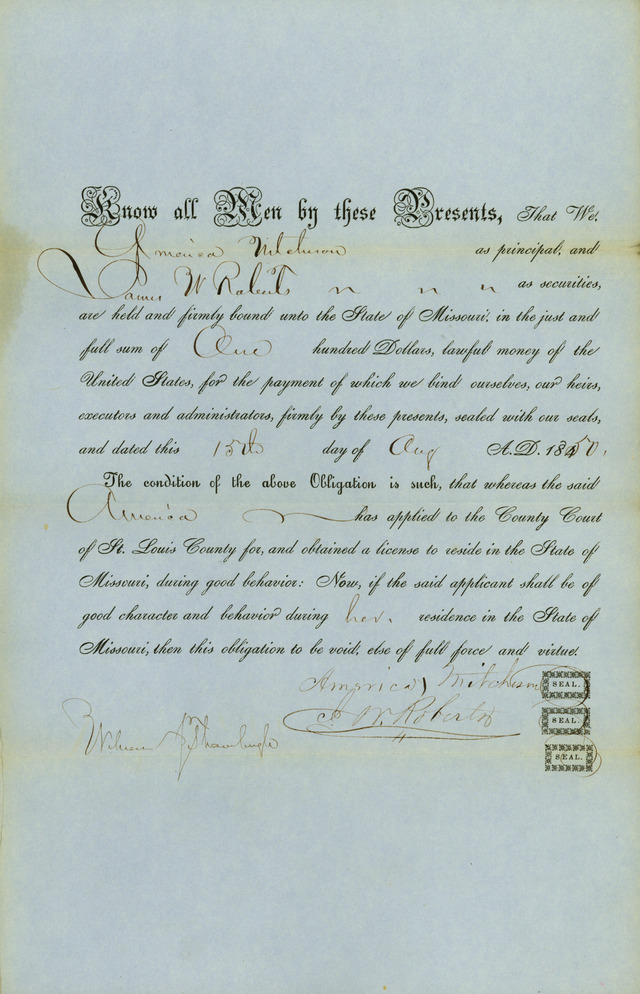 Know all Men by these Presents, That We,
America Mitcherson as principal, and
James W Roberts " " " as securities,
are held and firmly bound unto the State of Missouri, in the just and
full sum of One hundred Dollars, lawful money of the
United States, for the payment of which we bind ourselves, our heirs,
executors and administrators, firmly by these presents, sealed with our seals,
and dated this 15th day of Aug A.D. 1850,
The condition of the above Obligation is such, that whereas the said
America has applied to the County Court
of St. Louis County for, and obtained a license to reside in the State of
Missouri, during good behavior: Now, if the said applicant shall be of
good character and behavior during her residence in the State of
Missouri, then this obligation to be void, else of full force and virtue.
America Mitcherson SEAL.
J. W. Roberts SEAL.
SEAL.